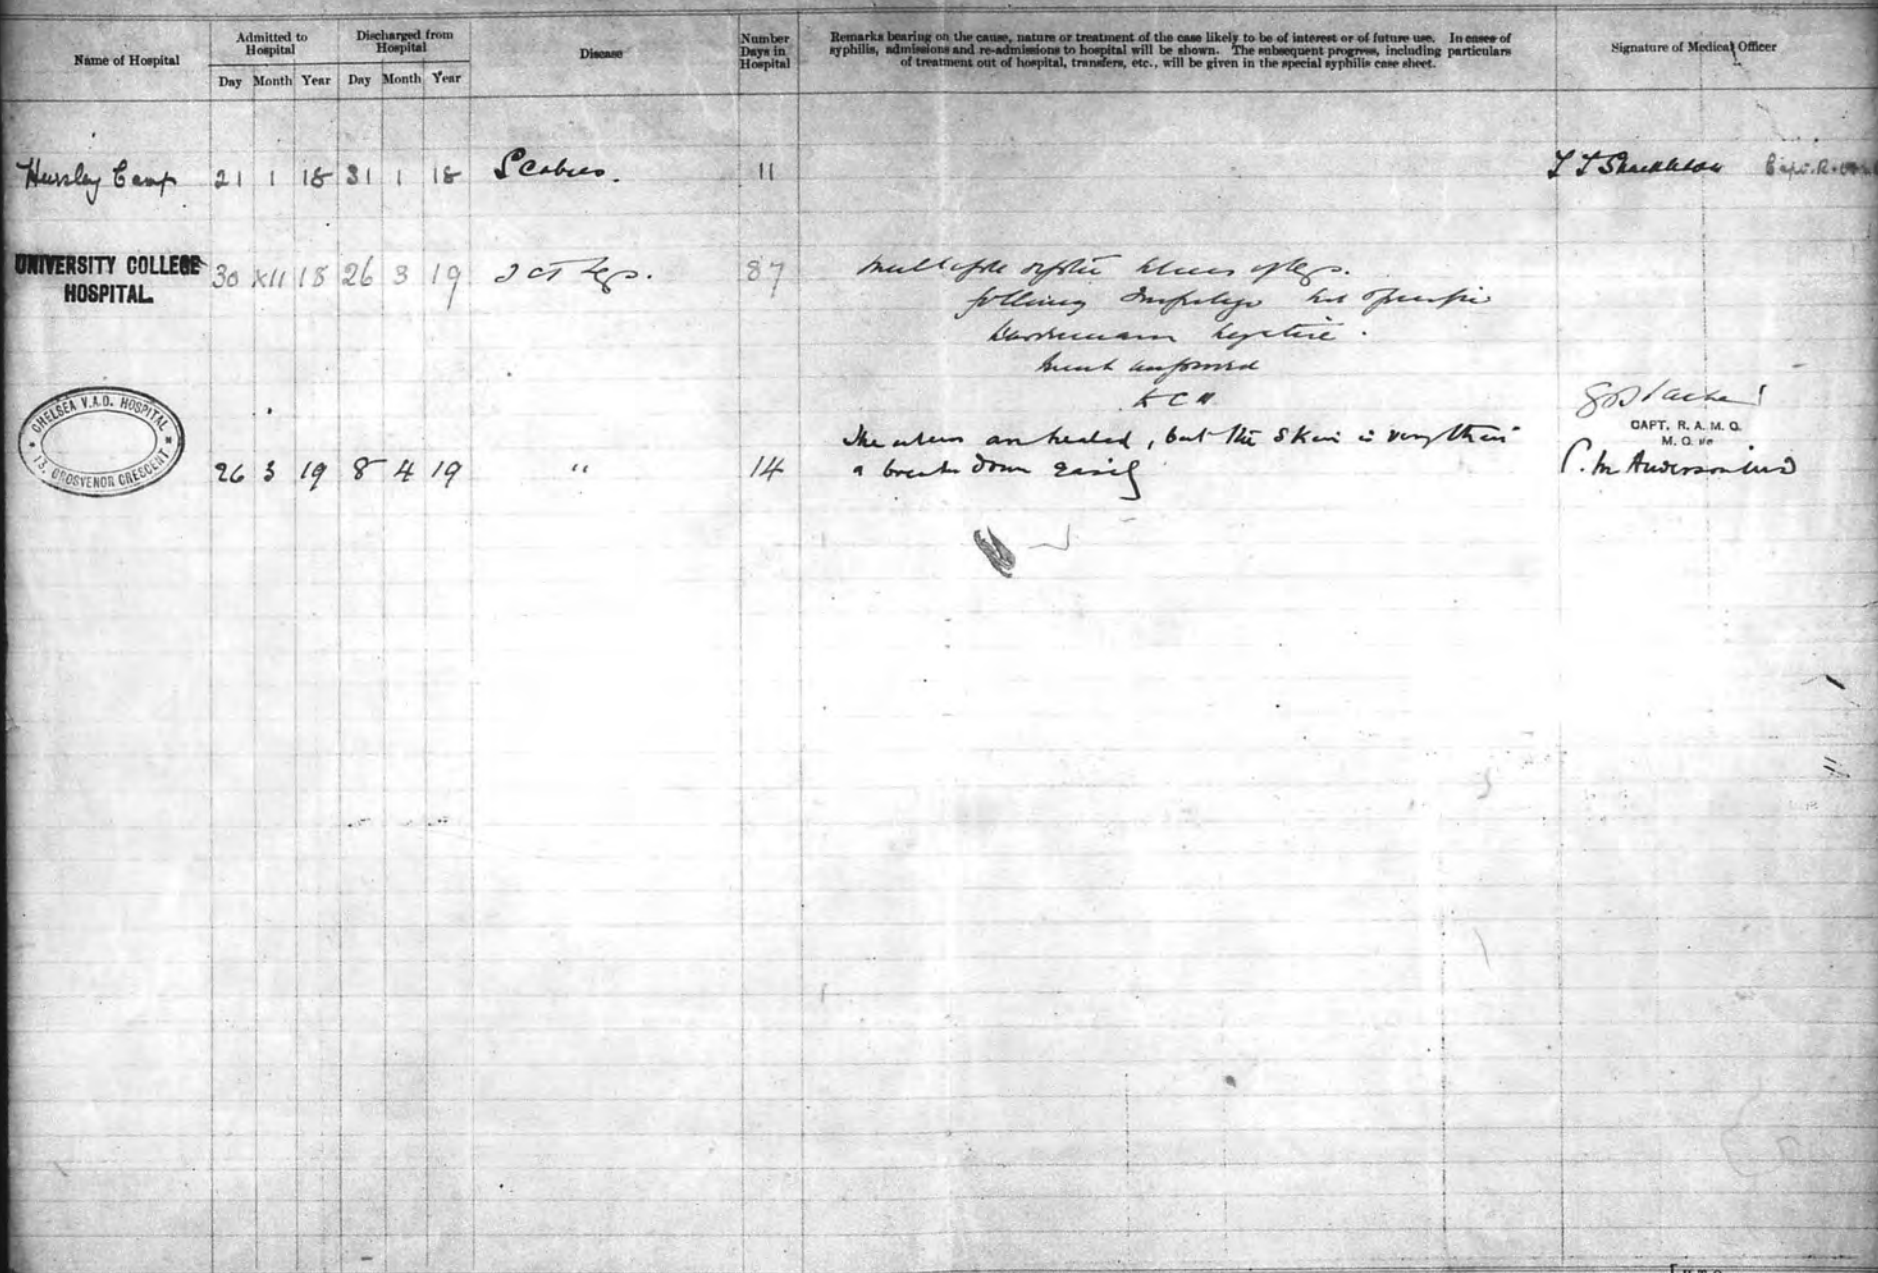 Name of Hospital
Admitted to Hospital
Discharged from Hospital
Disease
Number Days in Hospital
Remarks bearing on the cause, nature or treatment of the case likely to be of interest or of future use. In cases of
syphilis, admissions and re-admissions to hospital will be shown. The subsequent progress, including particulars
of treatment out of hospital, transfers, etc., will be given in the special syphilis case sheet.
Signature of Medical Officer
Day Month Year Day Month Year
Hursley Camp 21 1 18 31 1 18 Scabies. 11 Shackleton Capt. R.
UNIVERSITY COLLEGE
HOSPITAL.
30 XII 18 26 3 19 I C T Legs. 87 Multiple septic ulcers of legs.
following Impetigo not specific
Wassermann negative.
much improved
CAPT. R. A. M. C.
M. O. i/c
CHELSEA V.A.D. HOSPITAL
13, GROSVENOR CRESCENT
26 3 19 8 4 19 " 14
The ulcers are healed, but the skin is very thin
& breaks down easily
Anderson